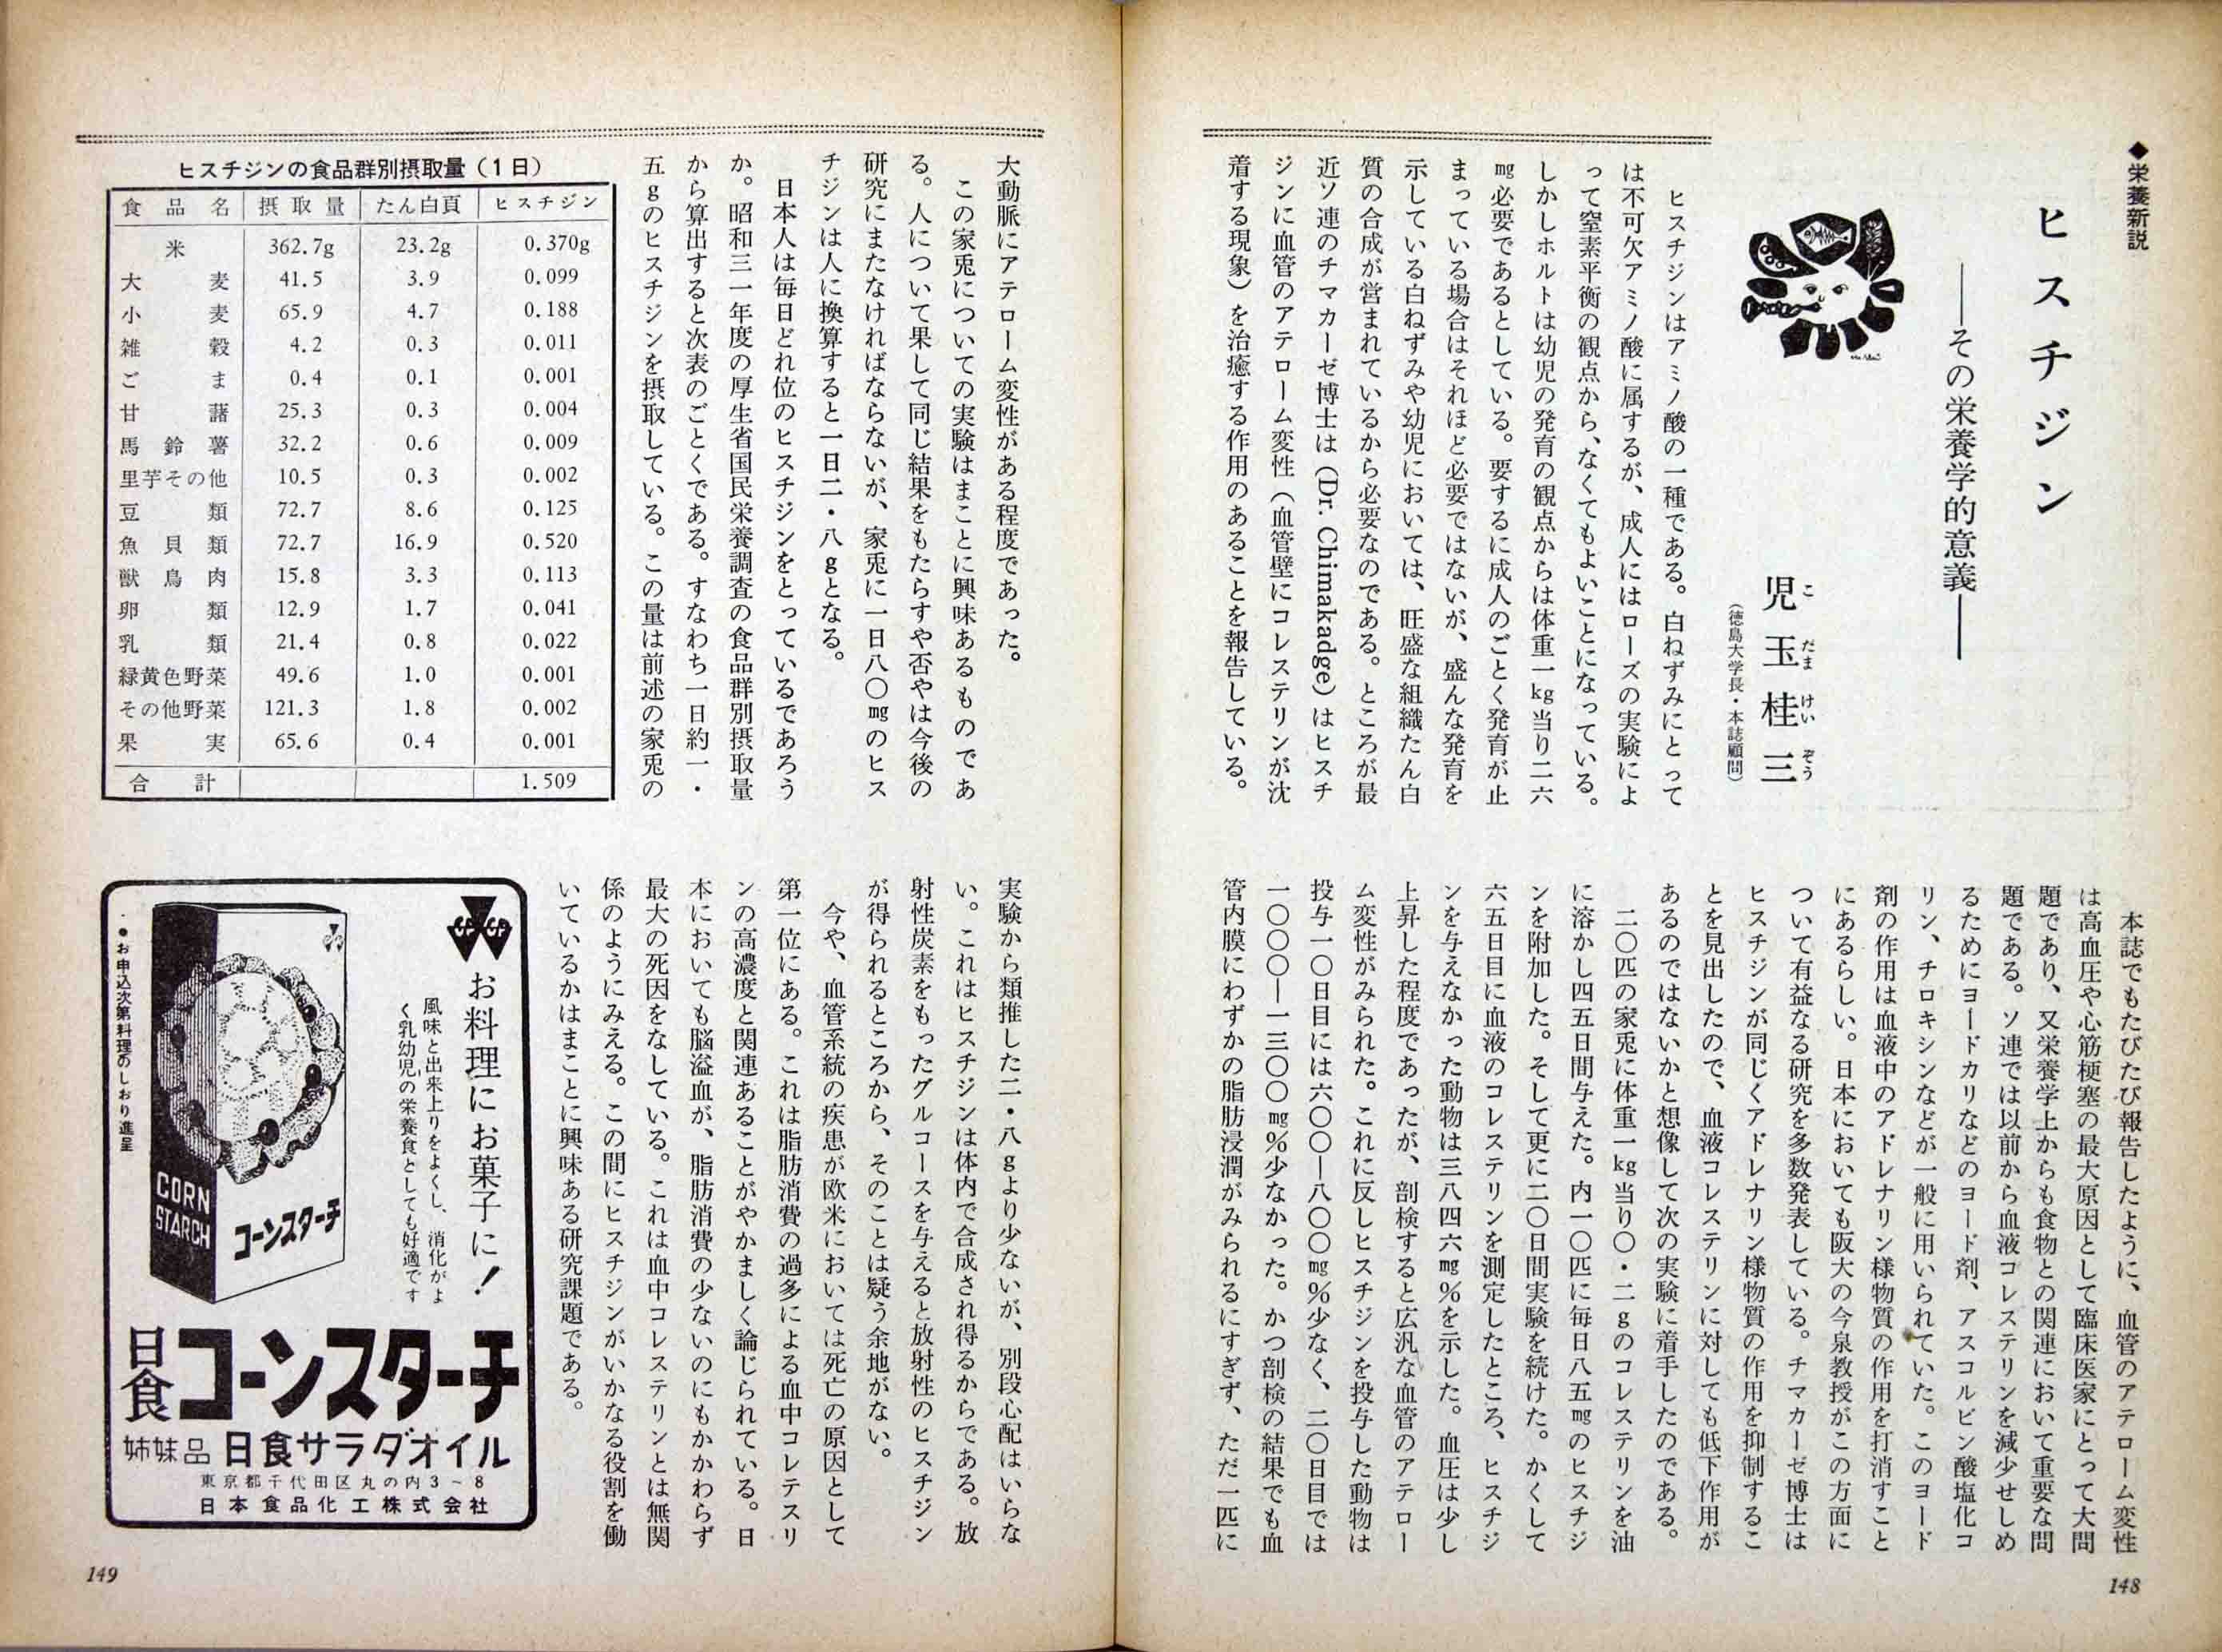 ◆栄養新説
ヒスチジン
――その栄養学的意義――
児玉桂三
こだまけいぞう
（徳島大学長・本誌顧問）
ヒスチジンはアミノ酸の一種である。白ねずみにとって
は不可欠アミノ酸に属するが、成人にはローズの実験によ
って窒素平衡の観点から、なくてもよいことになっている。
しかしホルトは幼児の発育の観点からは体重一kg当り二六
mg必要であるとしている。要するに成人のごとく発育が止
まっている場合はそれほど必要ではないが、盛んな発育を
示している白ねずみや幼児においては、旺盛な組織たん白
質の合成が営まれているから必要なのである。ところが最
近ソ連のチマカーゼ博士は（Dr. Chimakadge）はヒスチ
ジンに血管のアテローム変性（血管壁にコレステリンが沈
着する現象）を治癒する作用のあることを報告している。
本誌でもたびたび報告したように、血管のアテローム変性
は高血圧や心筋梗塞の最大原因として臨床医家にとって大問
題であり、又栄養学上からも食物との関連において重要な問
題である。ソ連では以前から血液コレステリンを減少せしめ
るためにヨードカリなどのヨード剤、アスコルビン酸塩化コ
リン、チロキシンなどが一般に用いられていた。このヨード
剤の作用は血液中のアドレナリン様物質の作用を打消すこと
にあるらしい。日本においても阪大の今泉教授がこの方面に
ついて有益なる研究を多数発表している。チマカーゼ博士は
ヒスチジンが同じくアドレナリン様物質の作用を抑制するこ
とを見出したので、血液コレステリンに対しても低下作用が
あるのではないかと想像して次の実験に着手したのである。
二〇匹の家兎に体重一kg当り〇・二gのコレステリンを油
に溶かし四五日間与えた。内一〇匹に毎日八五mgのヒスチジ
ンを附加した。そして更に二〇日間実験を続けた。かくして
六五日目に血液のコレステリンを測定したところ、ヒスチジ
ンを与えなかった動物は三八四六mg％を示した。血圧は少し
上昇した程度であったが、剖検すると広汎な血管のアテロー
ム変性がみられた。これに反しヒスチジンを投与した動物は
投与一〇日目には六〇〇―八〇〇mg％少なく、二〇日目では
一〇〇〇―一三〇〇mg％少なかった。かつ剖検の結果でも血
管内膜にわずかの脂肪浸潤がみられるにすぎず、ただ一匹に
148
大動脈にアテローム変性がある程度であった。
この家兎についての実験はまことに興味あるものであ
る。人について果して同じ結果をもたらすや否やは今後の
研究にまたなければならないが、家兎に一日八〇mgのヒス
チジンは人に換算すると一日二・八gとなる。
日本人は毎日どれ位のヒスチジンをとっているであろう
か。昭和三一年度の厚生省国民栄養調査の食品群別摂取量
から算出すると次表のごとくである。すなわち一日約一・
五gのヒスチジンを摂取している。この量は前述の家兎の
ヒスチジンの食品群別摂取量（1日）
食品名 摂取量 たん白頁 ヒスチジン
米 362.7g 23.2g 0.370g
大麦 41.5 3.9 0.099
小麦 65.9 4.7 0.188
雑穀 4.2 0.3 0.011
ごま 0.4 0.1 0.001
甘藷 25.3 0.3 0.004
馬鈴薯 32.2 0.6 0.009
里芋その他 10.5 0.3 0.002
豆類 72.7 8.6 0.125
魚貝類 72.7 16.9 0.520
獣鳥肉 15.8 3.3 0.113
卵類 12.9 1.7 0.041
乳類 21.4 0.8 0.022
緑黄色野菜 49.6 1.0 0.001
その他野菜 121.3 1.8 0.002
果実 65.6 0.4 0.001
合計 1.509
実験から類推した二・八gより少ないが、別段心配はいらな
い。これはヒスチジンは体内で合成され得るからである。放
射性炭素をもったグルコースを与えると放射性のヒスチジン
が得られるところから、そのことは疑う余地がない。
今や、血管系統の疾患が欧米においては死亡の原因として
第一位にある。これは脂肪消費の過多による血中コレテスリ
ンの高濃度と関連あることがやかましく論じられている。日
本においても脳溢血が、脂肪消費の少ないのにもかかわらず
最大の死因をなしている。これは血中コレステリンとは無関
係のようにみえる。この間にヒスチジンがいかなる役割を働
いているかはまことに興味ある研究課題である。
CP CP
お料理にお菓子に！
風味と出来上りをよくし、消化がよ
く乳幼児の栄養食としても好適です
CORN
STARCH
コーンスターチ
●お申込次第料理のしおり進呈
日食コーンスターチ
姉妹品 日食サラダオイル
東京都千代田区丸の内3～8
日本食品化工株式会社
149